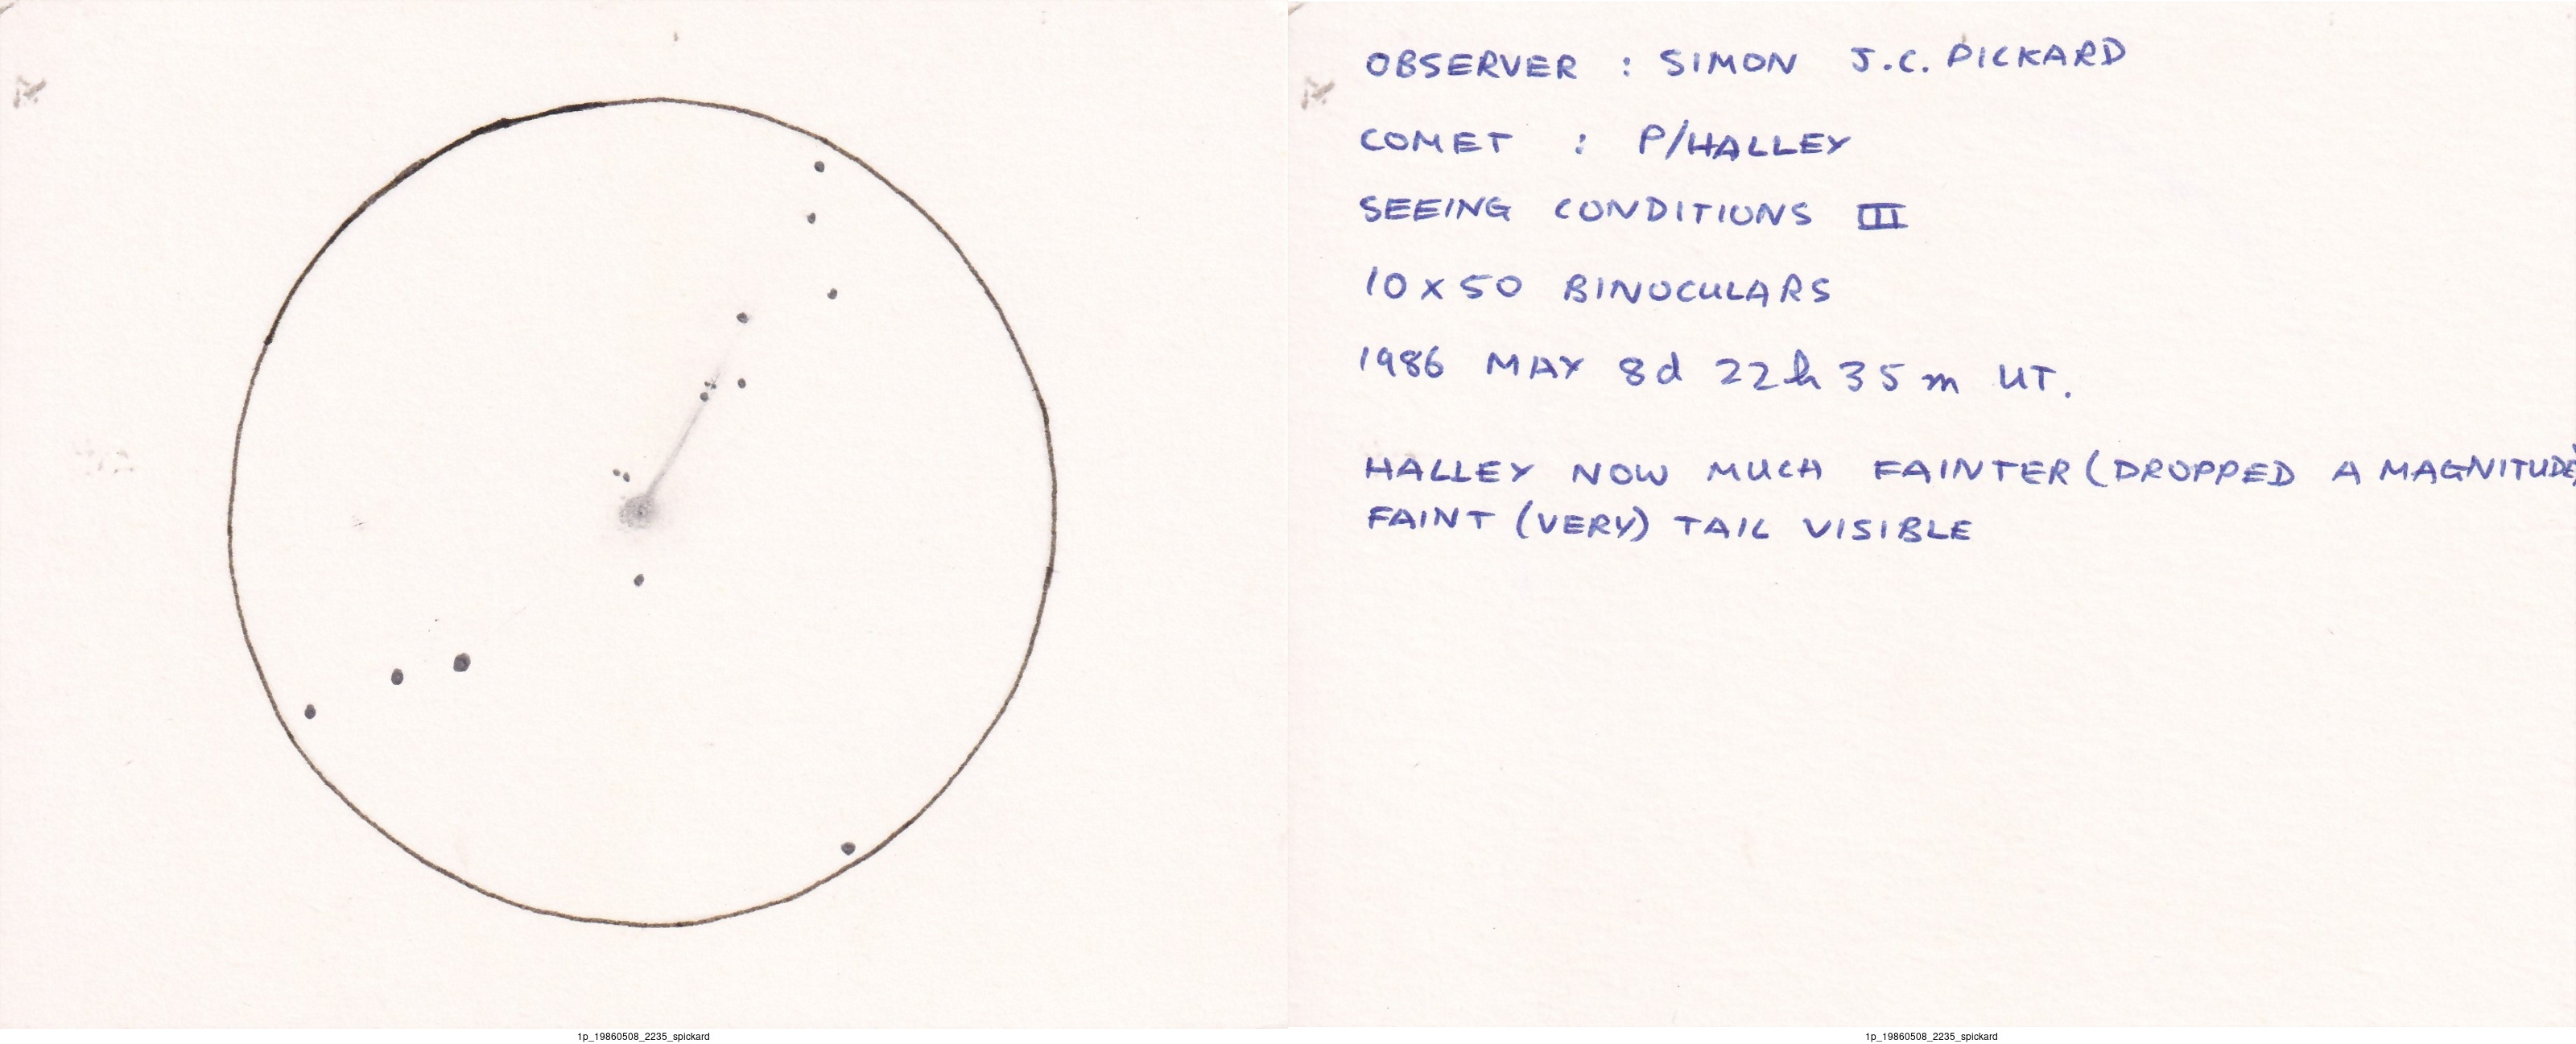 OBSERVER : SIMON J.C. PICKARD
COMET : P/HALLEY
SEEING CONDITIONS III
10 x 50 BINOCULARS
1986 MAY 8d 22h 35m UT.
HALLEY NOW MUCH FAINTER (DROPPED A MAGNITUDE)
FAINT (VERY) TAIL VISIBLE
1p_19860508_2235_spickard
1p_19860508_2235_spickard